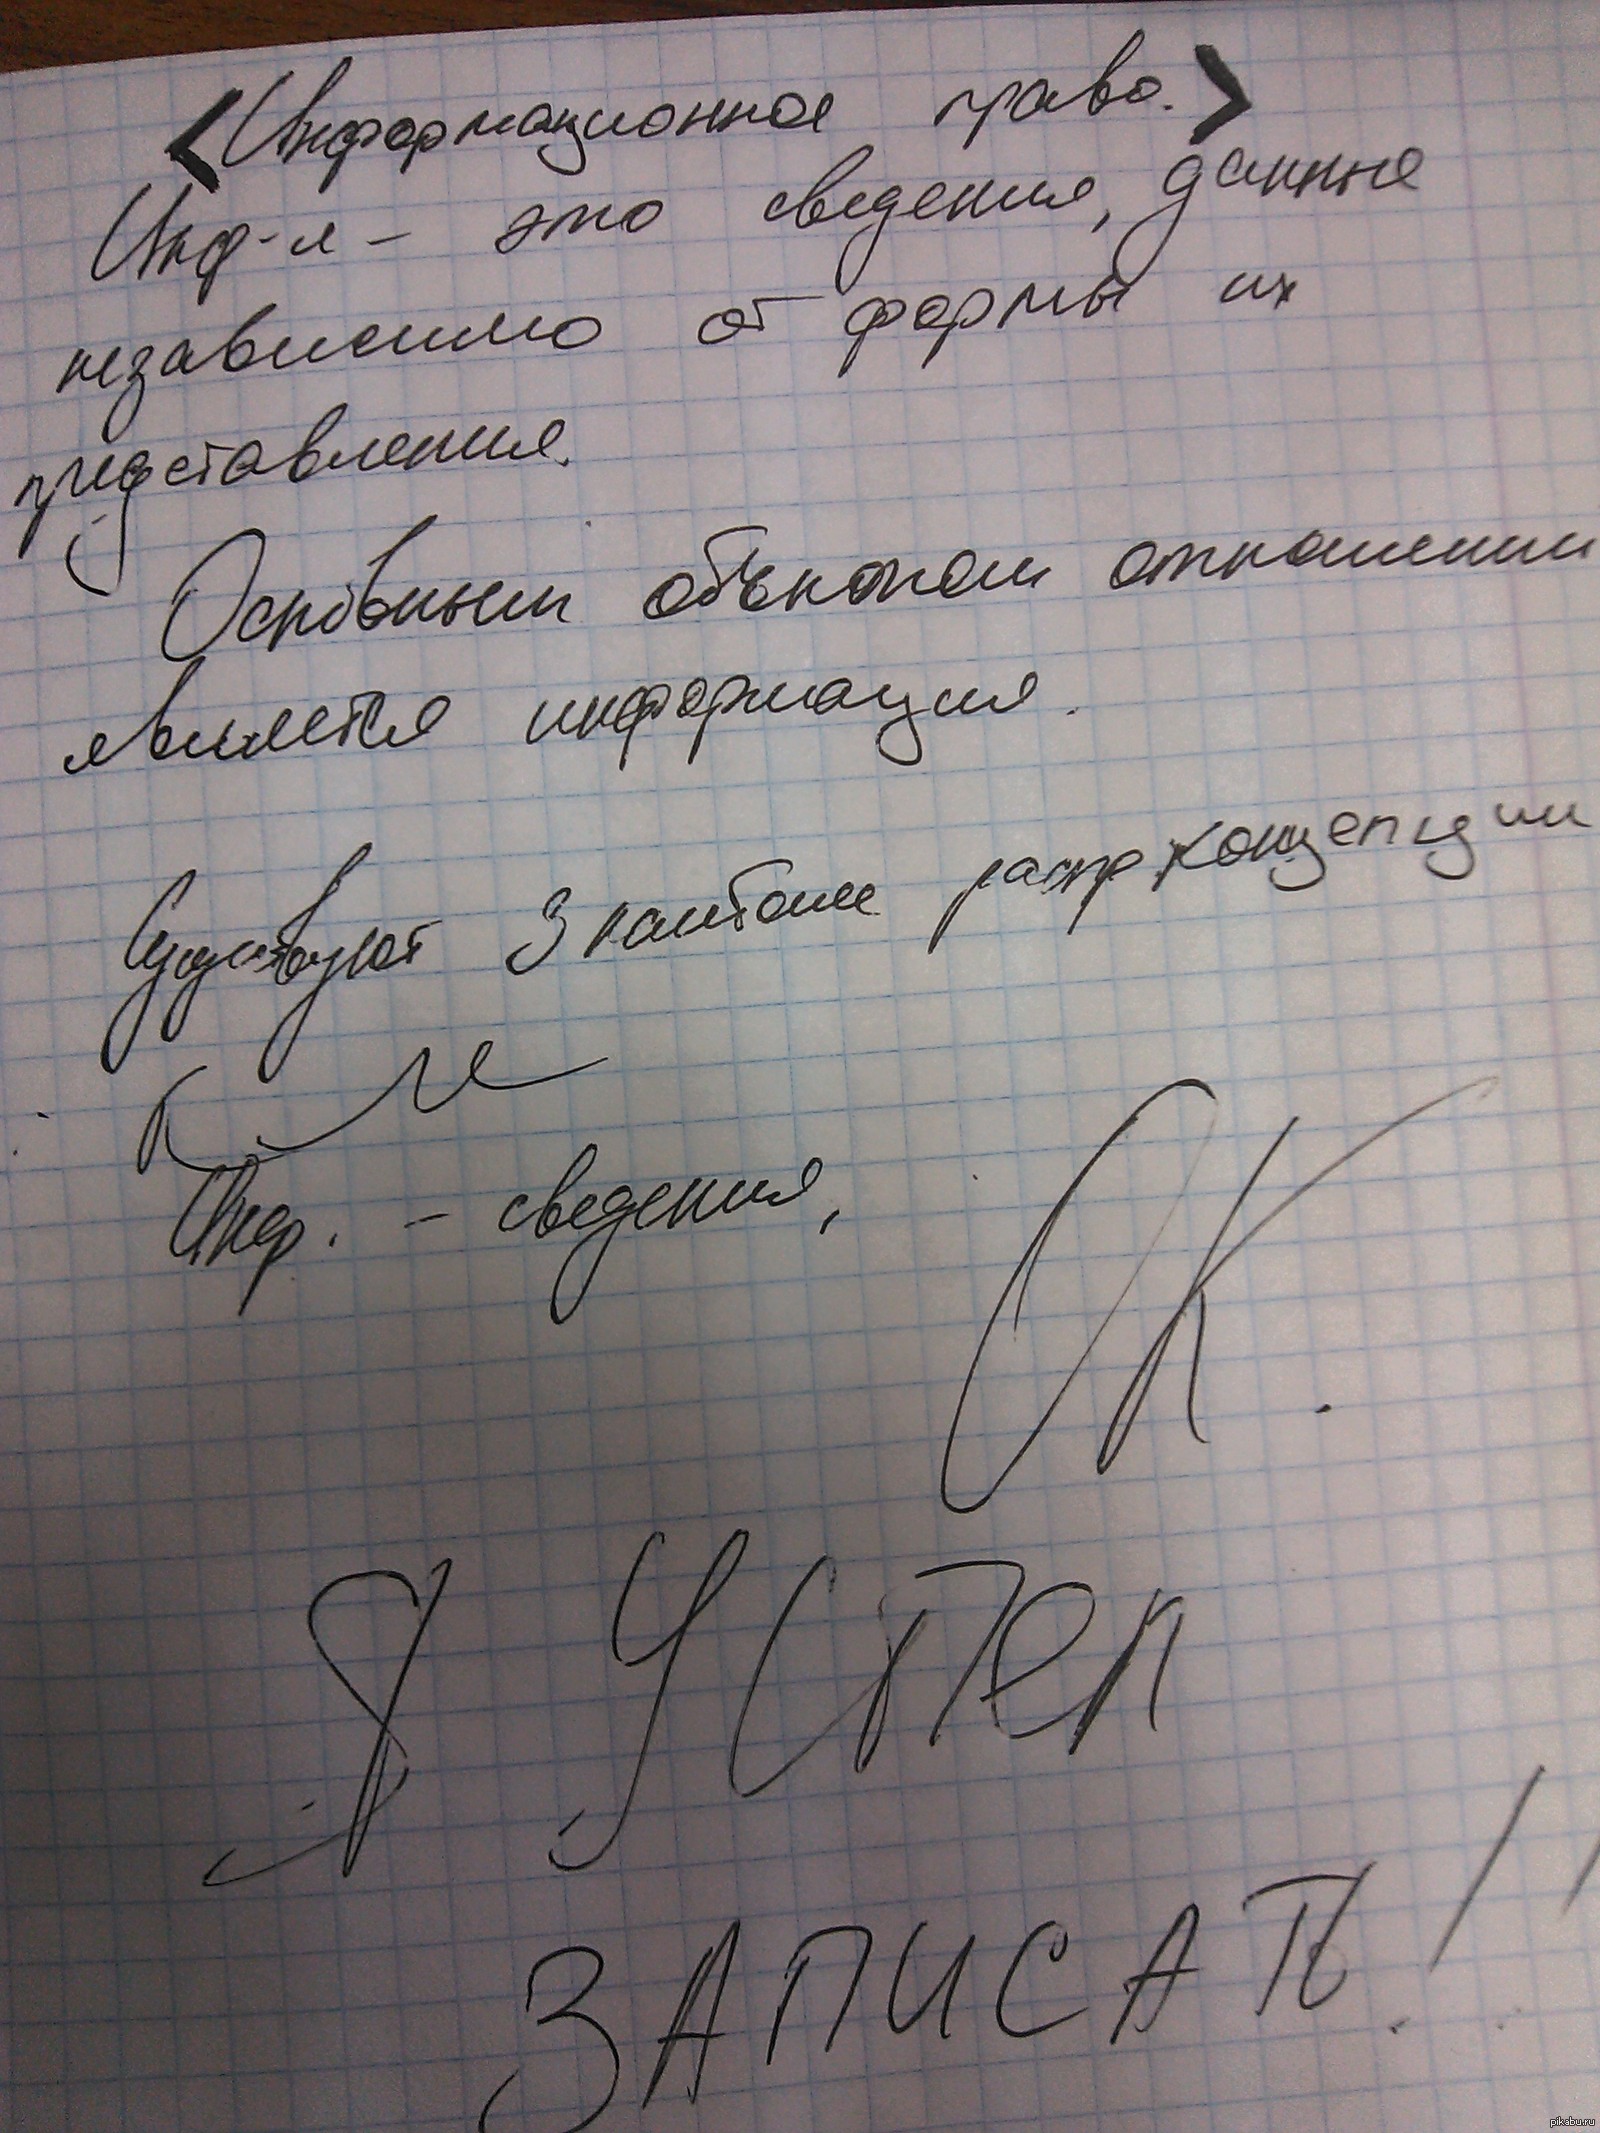 <Информационное право.>
Инф-я – это сведения, данные
независимо от формы их
представления.
Основным объектом отношений
является информация.
Существуют 3 наиболее распр концепции
Инф. – сведения,
Я УСПЕЛ
ЗАПИСАТЬ!!
pikabu.ru